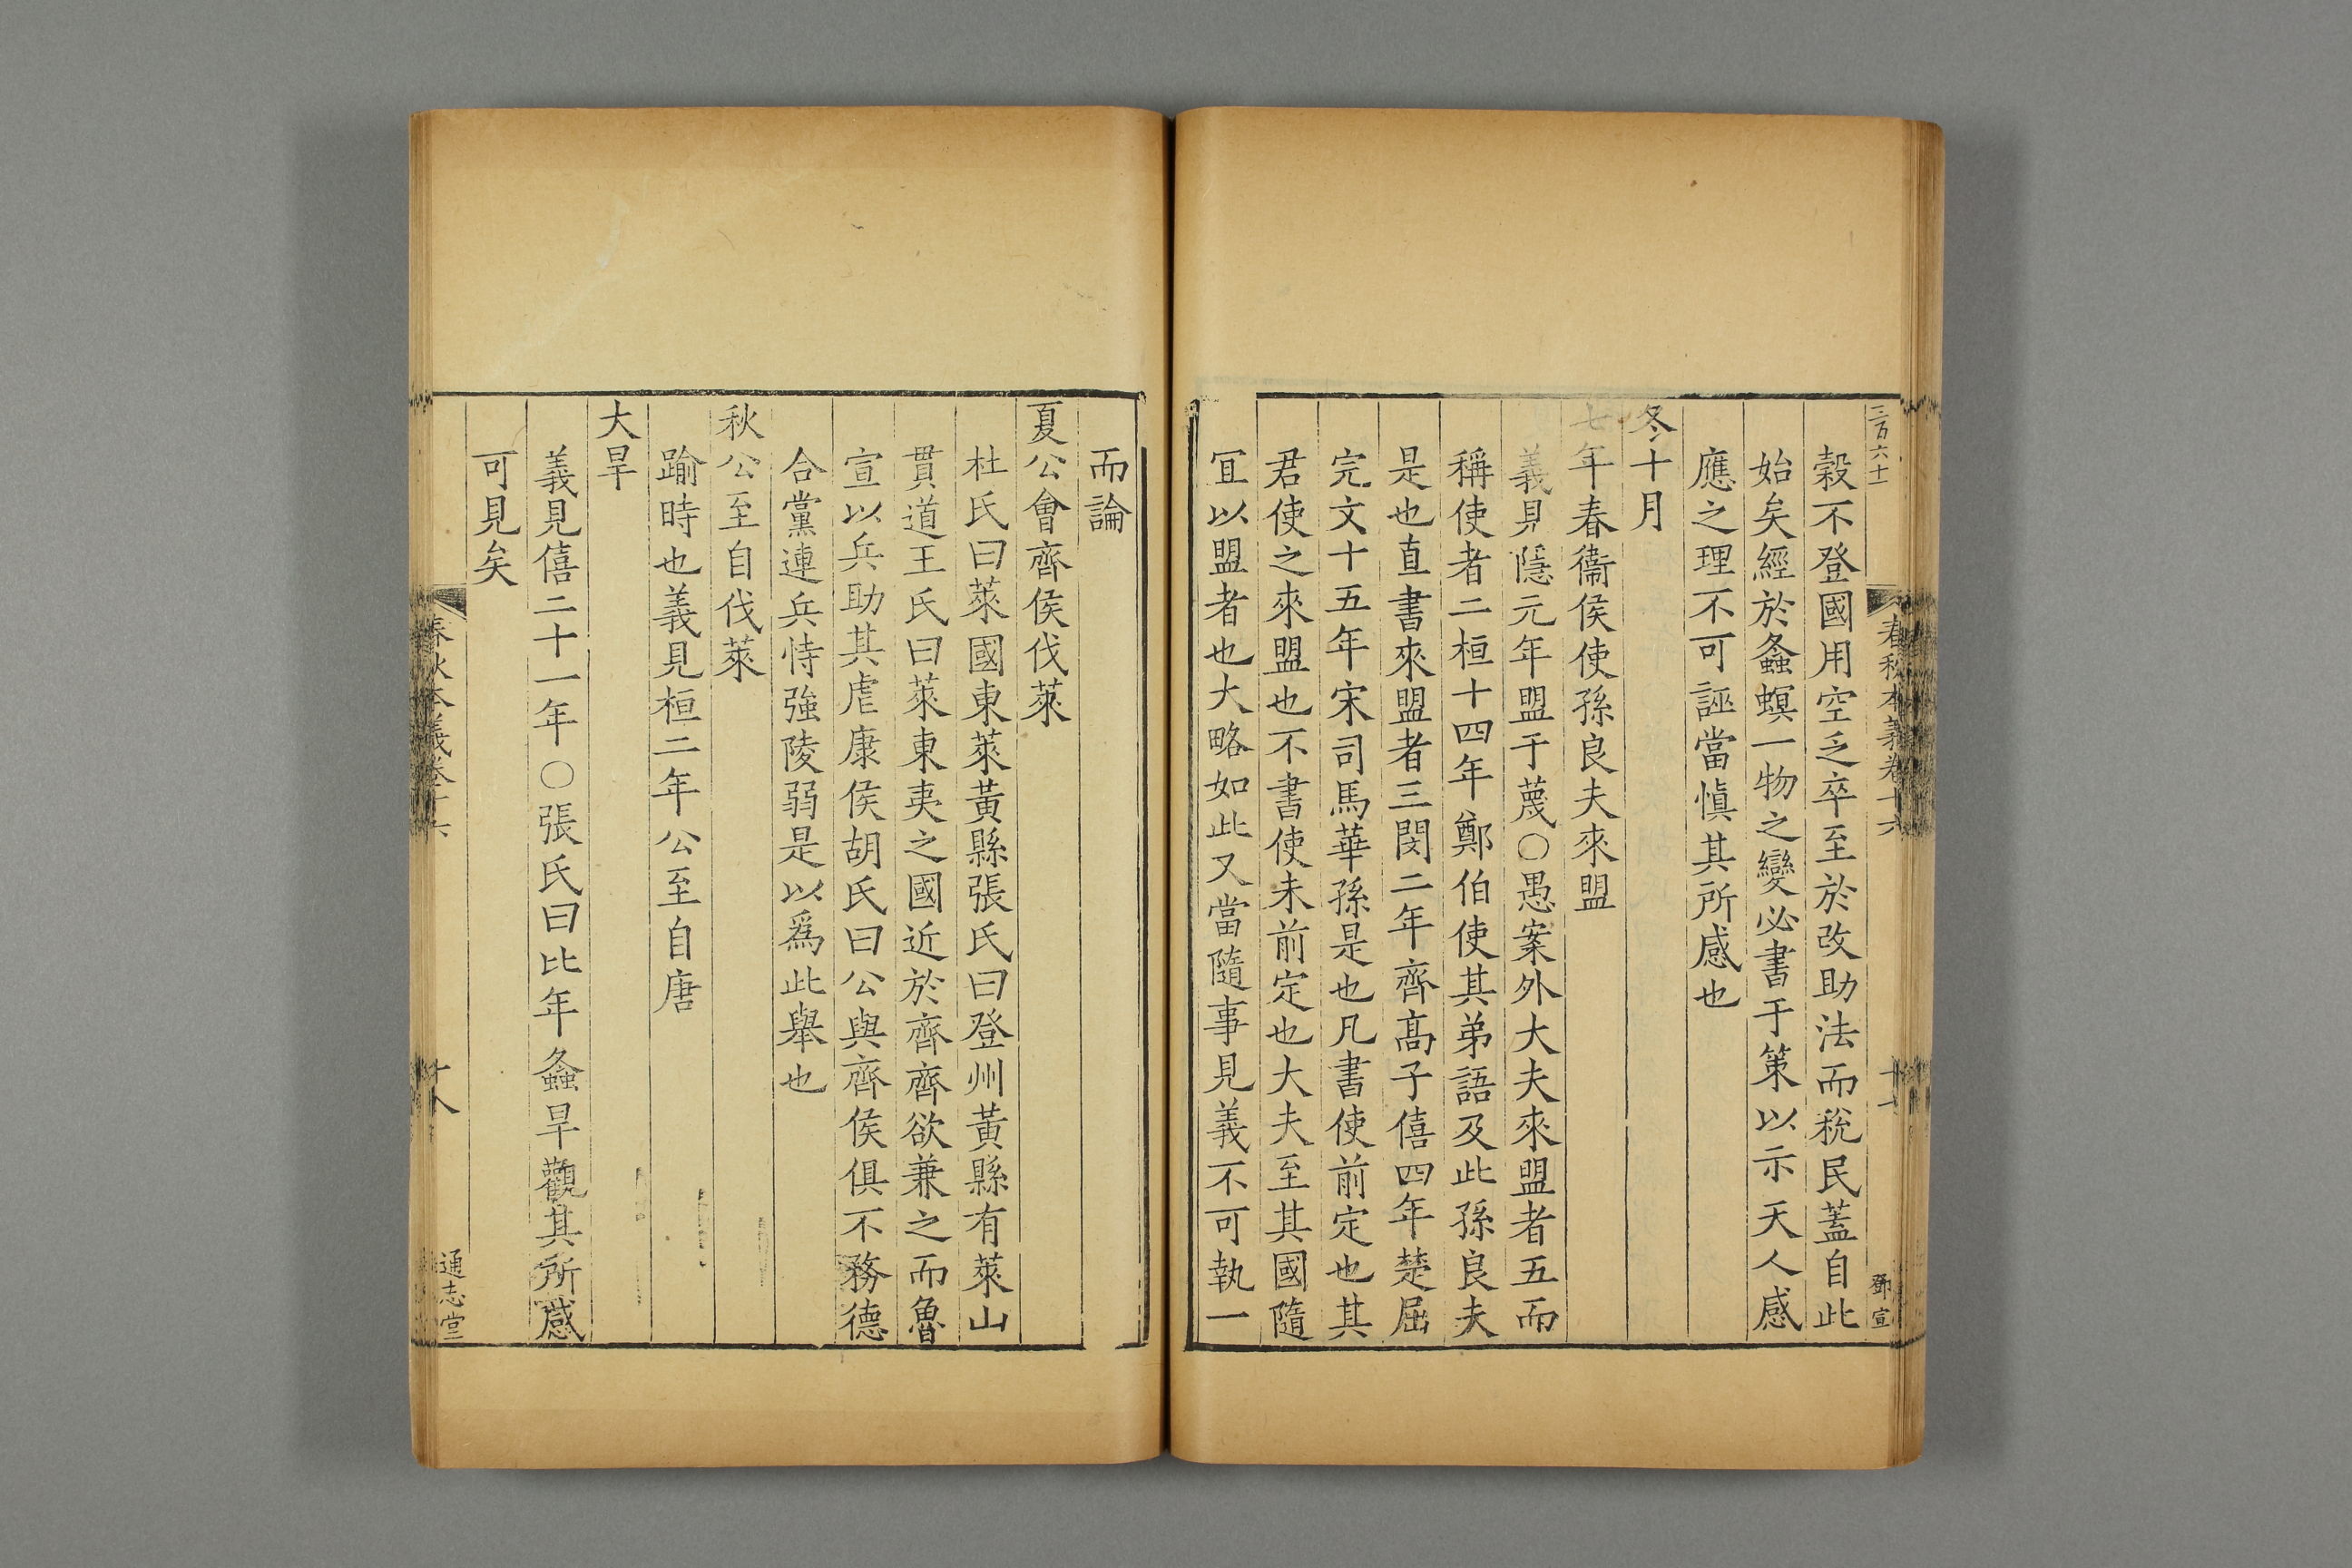 三百六十一
春秋本義卷十六
十七
鄧宣
穀不登國用空乏卒至於改助法而稅民蓋自此
始矣經於螽螟一物之變必書于策以示天人感
應之理不可誣當愼其所感也
冬十月
七年春衞侯使孫良夫來盟
義見隱元年盟于蔑○愚案外大夫來盟者五而
稱使者二桓十四年鄭伯使其弟語及此孫良夫
是也直書來盟者三閔二年齊高子僖四年楚屈
完文十五年宋司馬華孫是也凡書使前定也其
君使之來盟也不書使未前定也大夫至其國隨
冝以盟者也大略如此又當隨事見義不可執一
而論
夏公會齊侯伐萊
杜氏曰萊國東萊黃縣張氏曰登州黃縣有萊山
貫道王氏曰萊東夷之國近於齊齊欲兼之而魯
宣以兵助其虐康侯胡氏曰公與齊侯俱不務德
合黨連兵恃強陵弱是以爲此舉也
秋公至自伐萊
踰時也義見桓二年公至自唐
大旱
義見僖二十一年○張氏曰比年螽旱觀其所感
可見矣
春秋本義卷十六
十八
通志堂